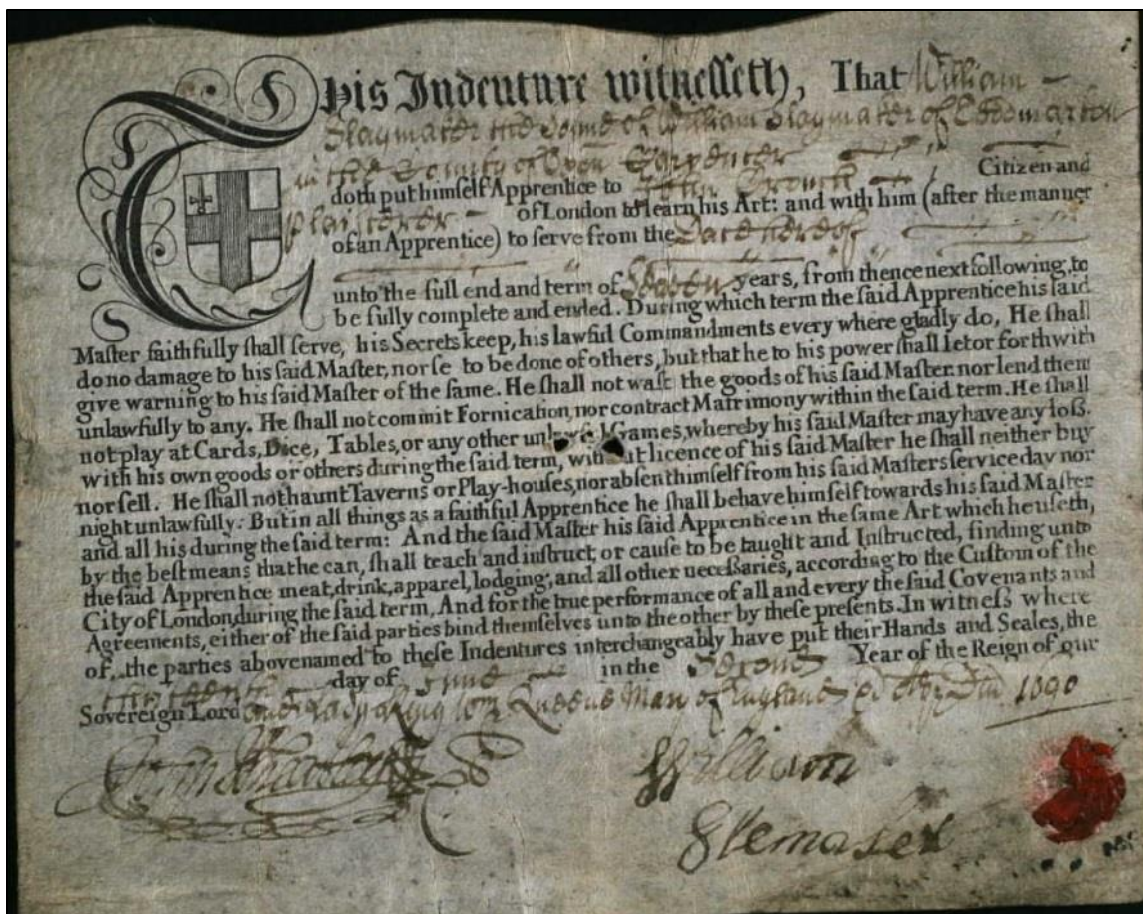 This Indenture witnesseth, That William
Slaymaker the Sonne of William Slaymaker of
in the County of Oxon Carpenter
doth put himself Apprentice to John Crouch Citizen and
Plaisterer of London to learn his Art: and with him (after the manner
of an Apprentice) to serve from the Date hereof
unto the full end and term of Seaven years, from thence next following, to
be fully complete and ended. During which term the said Apprentice his said
Master faithfully shall serve, his Secrets keep, his lawful Commandments every where gladly do, He shall
do no damage to his said Master, nor se to be done of others, but that he to his power shall let or forthwith
give warning to his said Master of the same. He shall not wast the goods of his said Master nor lend them
unlawfully to any. He shall not commit Fornication, nor contract Matrimony within the said term. He shall
not play at Cards, Dice, Tables, or any other Games, whereby his said Master may have any loss.
with his own goods or others during the said term, without licence of his said Master he shall neither buy
nor sell. He shall not haunt Taverns or Play-houses, nor absent himself from his said Masters service day nor
night unlawfully: But in all things as a faithful Apprentice he shall behave himself towards his said Master
and all his during the said term: And the said Master his said Apprentice in the same Art which he useth,
by the best means that he can, shall teach and instruct, or cause to be taught and Instructed, finding unto
the said Apprentice meat, drink, apparel, lodging, and all other necessaries, according to the Custom of the
City of London, during the said term. And for the true performance of all and every the said Covenants and
Agreements, either of the said parties bind themselves unto the other by these presents. In witness where
of, the parties abovenamed to these Indentures interchangeably have put their Hands and Seales, the
thirteenth day of June in the Second Year of the Reign of our
Sovereign Lord and Lady King Queene Mary of England 1690
William
Slemaker